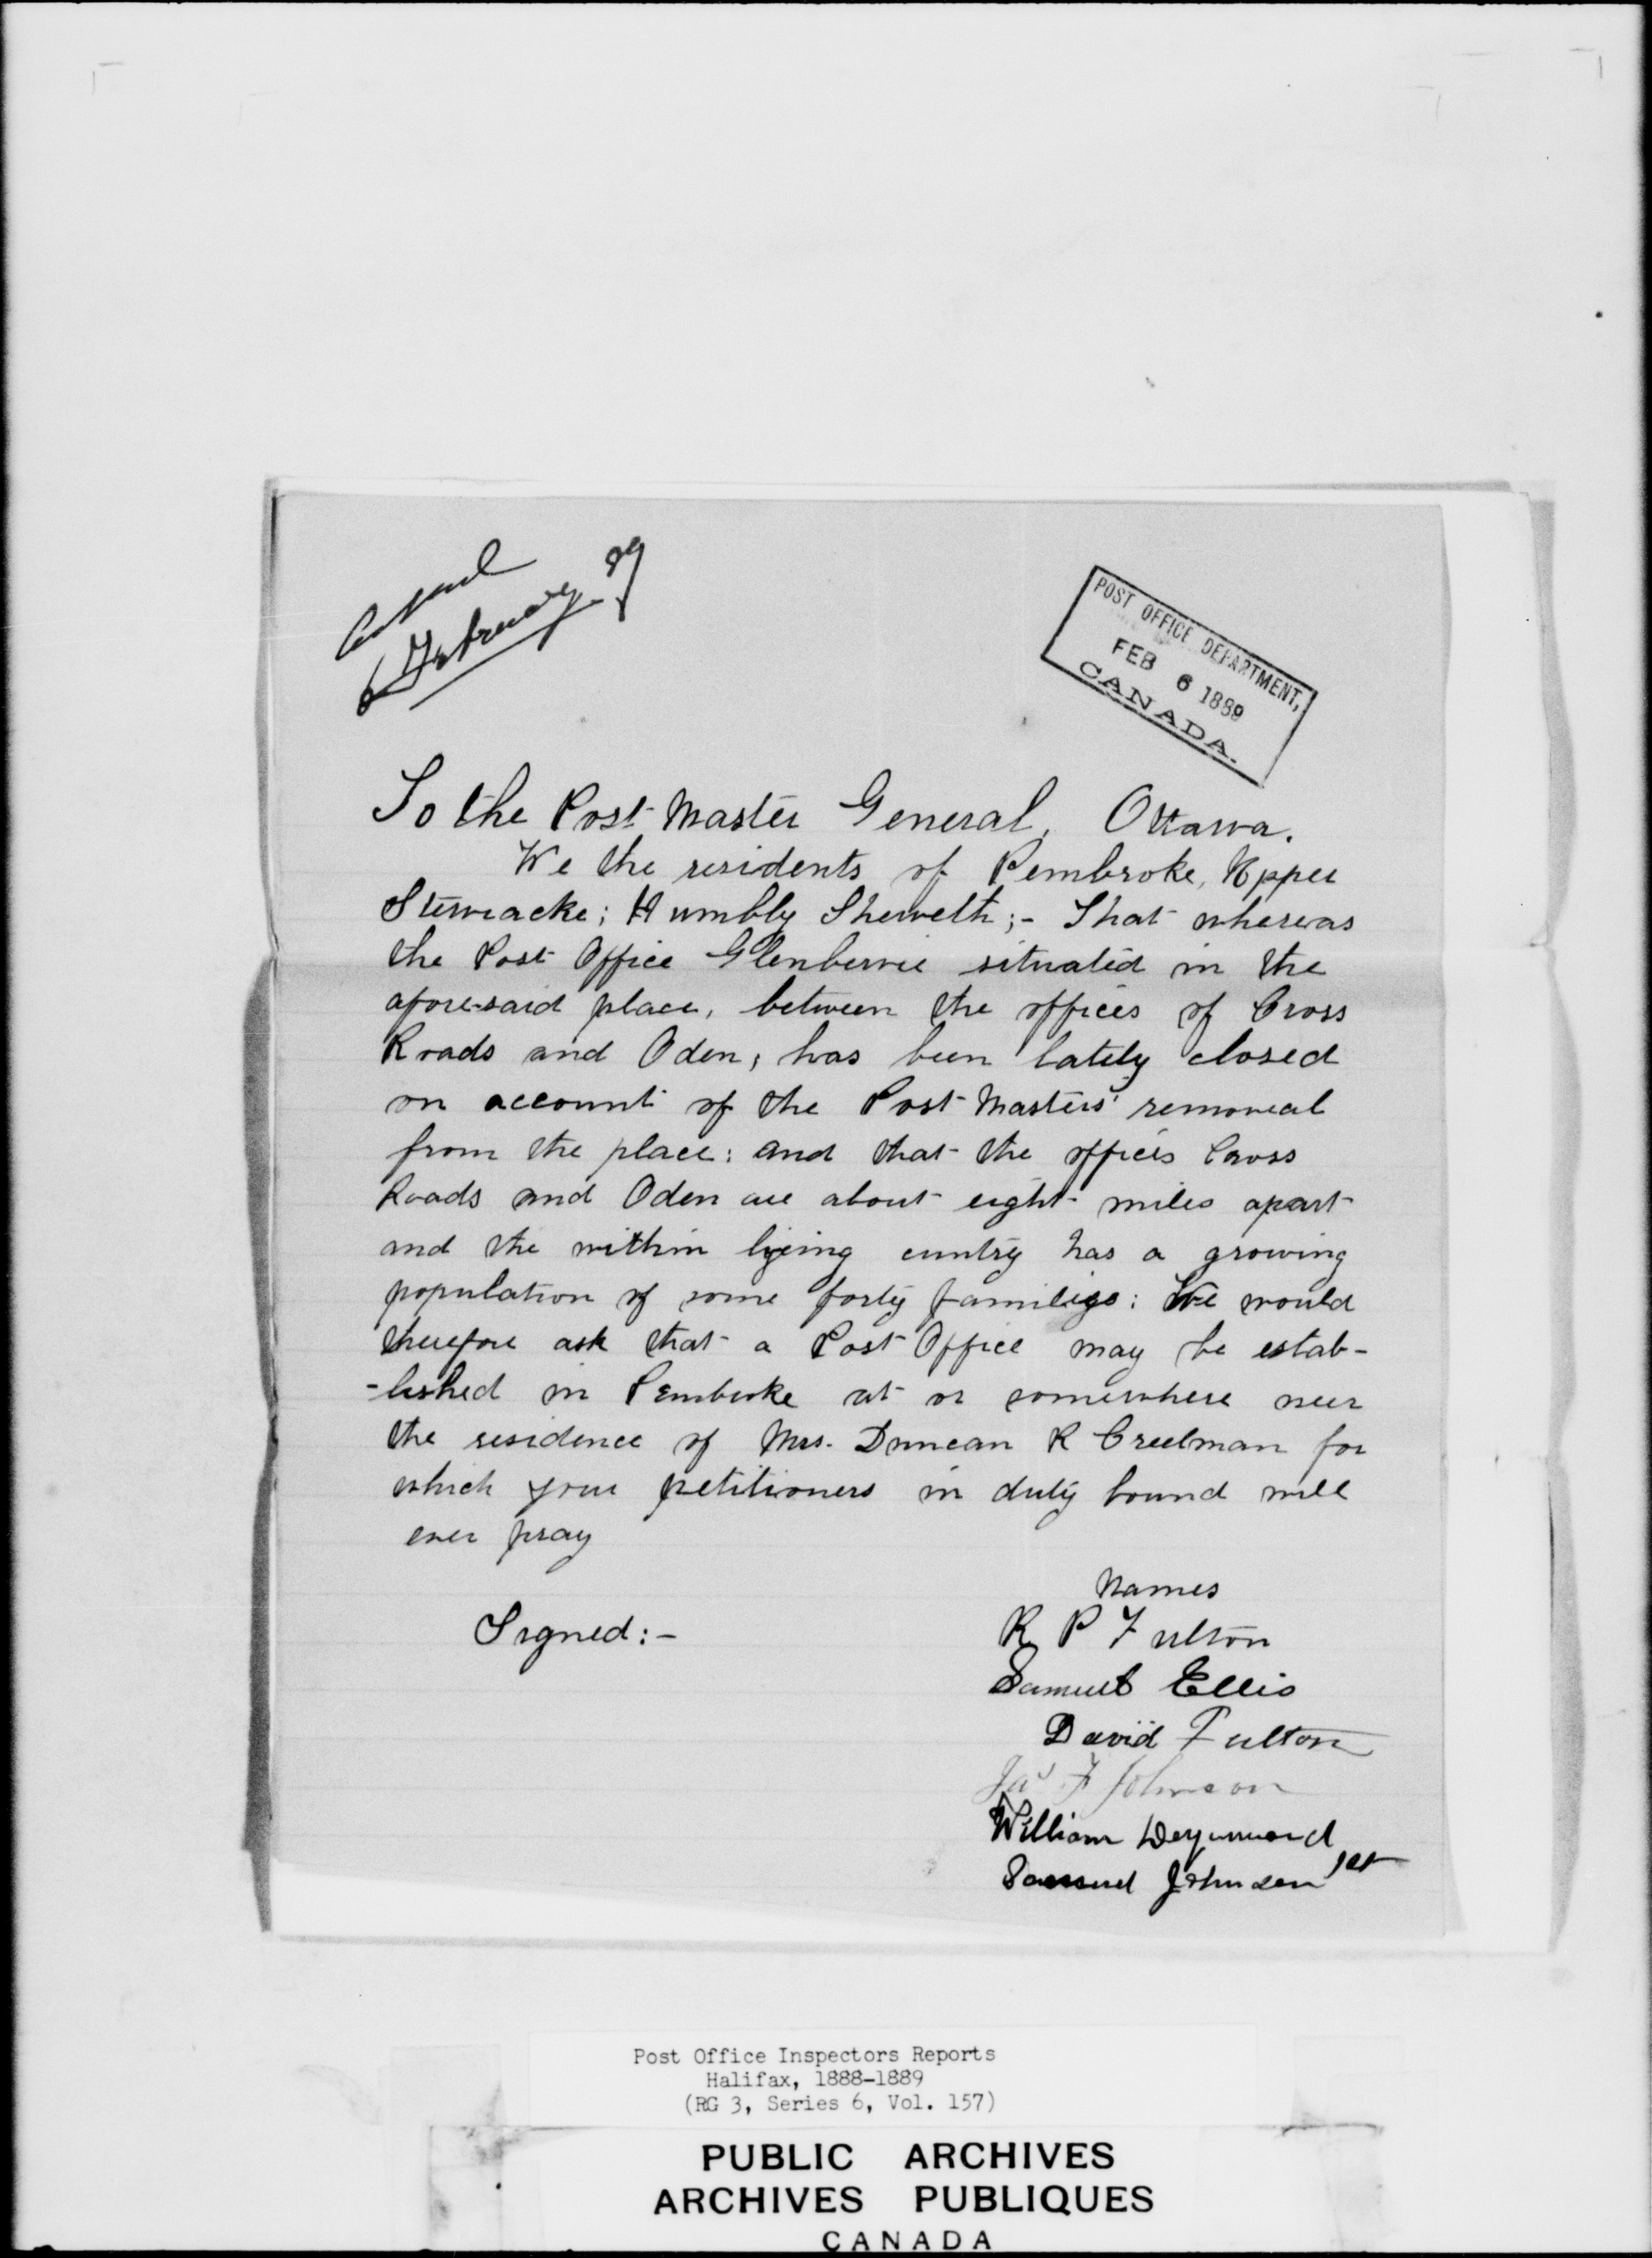 6 February 89
POST OFFICE DEPARTMENT,
FEB 6 1889
CANADA.
To the Post Master General, Ottawa.
We the residents of Pembroke, Upper
Stewiacke; Humbly Sheweth;- That whereas
the Post Office Glenbervie situated in the
afore-said place, between the offices of Cross
Roads and Oden, has been lately closed
on account of the Post Masters' removal
from the place: and that the offices Cross
Roads and Oden are about eight miles apart
and the within lyeing cuntry has a growing
population of some forty families: We would
therefore ask that a Post Office may be estab-
-lished in Pembroke at or somewhere near
the residence of Mrs. Duncan R Creelman for
which your petitioners in duty bound will
ever pray
Names
Signed:- R P Fulton
Samuel Ellis
David Fulton
Jas F Johnson
William Deyarmond
Samuel Johnson 1st
Post Office Inspectors Reports
Halifax, 1888-1889
(RG 3, Series 6, Vol. 157)
PUBLIC ARCHIVES
ARCHIVES PUBLIQUES
CANADA